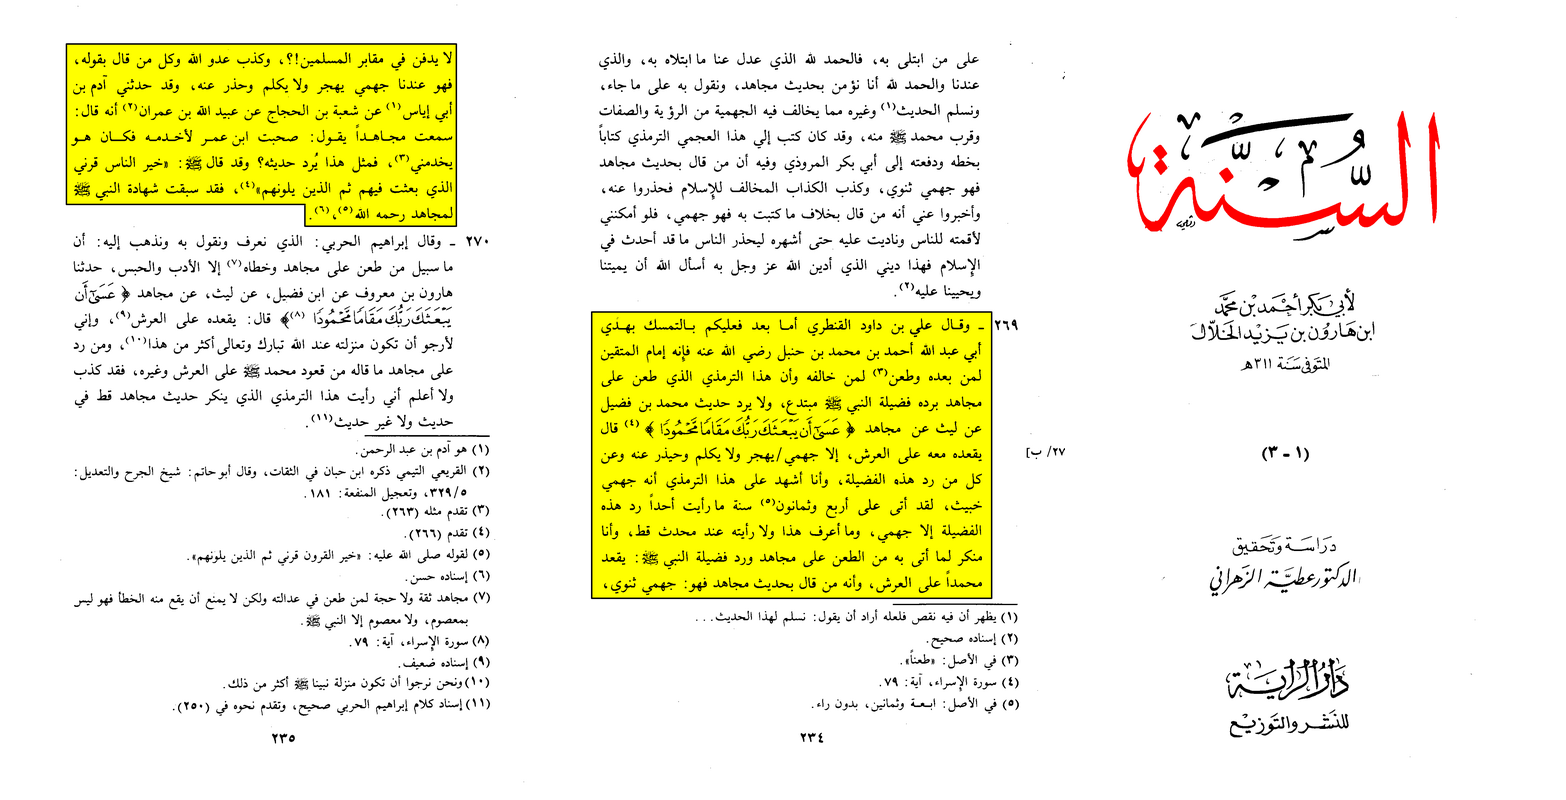 السنة
لأبي بكر أحمد بن محمد
ابن هارون بن يزيد الخلال
المتوفى سنة ٣١١ هـ
(١ - ٣)
دراسة وتحقيق
الدكتور عطية الزهراني
دار الراية
للنشر والتوزيع
على من ابتلى به، فالحمد لله الذي عدل عنا ما ابتلاه به، والذي
عندنا والحمد لله أنا نؤمن بحديث مجاهد، ونقول به على ما جاء،
ونسلم الحديث(١) وغيره مما يخالف فيه الجهمية من الرؤية والصفات
وقرب محمد ﷺ منه، وقد كان كتب إلي هذا العجمي الترمذي كتاباً
بخطه ودفعته إلى أبي بكر المروذي وفيه أن من قال بحديث مجاهد
فهو جهمي ثنوي، وكذب الكذاب المخالف للإسلام فحذروا عنه،
وأخبروا عني أنه من قال بخلاف ما كتبت به فهو جهمي، فلو أمكنني
لأقمته للناس وناديت عليه حتى أشهره ليحذر الناس ما قد أحدث في
الإسلام فهذا ديني الذي أدين الله عز وجل به أسأل الله أن يميتنا
ويحيينا عليه(٢).
٢٦٩ ـ وقال علي بن داود القنطري أما بعد فعليكم بالتمسك بهدي
أبي عبد الله أحمد بن محمد بن حنبل رضي الله عنه فإنه إمام المتقين
لمن بعده وطعن(٣) لمن خالفه وأن هذا الترمذي الذي طعن على
مجاهد برده فضيلة النبي ﷺ مبتدع، ولا يرد حديث محمد بن فضيل
عن ليث عن مجاهد ﴿ عَسَىٰٓ أَن يَبْعَثَكَ رَبُّكَ مَقَامًا مَّحْمُودًا ﴾ (٤) قال
يقعده معه على العرش، إلا جهمي/ يهجر ولا يكلم وحيذر عنه وعن
٢٧/ ب]
كل من رد هذه الفضيلة، وأنا أشهد على هذا الترمذي أنه جهمي
خبيث، لقد أتى على أربع وثمانون(٥) سنة ما رأيت أحداً رد هذه
الفضيلة إلا جهمي، وما أعرف هذا ولا رأيته عند محدث قط، وأنا
منكر لما أتى به من الطعن على مجاهد ورد فضيلة النبي ﷺ: يقعد
محمداً على العرش، وأنه من قال بحديث مجاهد فهو: جهمي ثنوي،
(١) يظهر أن فيه نقص فلعله أراد أن يقول: نسلم لهذا الحديث...
(٢) إسناده صحيح.
(٣) في الأصل: «طعناً».
(٤) سورة الإسراء، آية: ٧٩.
(٥) في الأصل: ابعة وثمانين، بدون راء.
٢٣٤
لا يدفن في مقابر المسلمين!؟، وكذب عدو الله وكل من قال بقوله،
فهو عندنا جهمي يهجر ولا يكلم وحذر عنه، وقد حدثني آدم بن
أبي إياس(١) عن شعبة بن الحجاج عن عبيد الله بن عمران(٢) أنه قال:
سمعت مجاهداً يقول: صحبت ابن عمر لأخدمه فكان هو
يخدمني(٣)، فمثل هذا يُرد حديثه؟ وقد قال ﷺ: «خير الناس قرني
الذي بعثت فيهم ثم الذين يلونهم»(٤)، فقد سبقت شهادة النبي ﷺ
لمجاهد رحمه الله(٥)،(٦).
٢٧٠ ـ وقال إبراهيم الحربي: الذي نعرف ونقول به ونذهب إليه: أن
ما سبيل من طعن على مجاهد وخطاه(٧) إلا الأدب والحبس، حدثنا
هارون بن معروف عن ابن فضيل، عن ليث، عن مجاهد ﴿ عَسَىٰٓ أَن
يَبْعَثَكَ رَبُّكَ مَقَامًا مَّحْمُودًا (٨)﴾ قال: يقعده على العرش(٩)، وإني
لأرجو أن تكون منزلته عند الله تبارك وتعالى أكثر من هذا(١٠)، ومن رد
على مجاهد ما قاله من قعود محمد ﷺ على العرش وغيره، فقد كذب
ولا أعلم أني رأيت هذا الترمذي الذي ينكر حديث مجاهد قط في
حديث ولا غير حديث(١١).
(١) هو آدم بن عبد الرحمن.
(٢) القريعي التيمي ذكره ابن حبان في الثقات، وقال أبو حاتم: شيخ الجرح والتعديل:
٣٢٩/٥، وتعجيل المنفعة: ١٨١.
(٣) تقدم مثله (٢٦٣).
(٤) تقدم (٢٦٦).
(٥) لقوله صلى الله عليه: «خير القرون قرني ثم الذين يلونهم».
(٦) إسناده حسن.
(٧) مجاهد ثقة ولا حجة لمن طعن في عدالته ولكن لا يمنع أن يقع منه الخطأ فهو ليس
بمعصوم، ولا معصوم إلا النبي ﷺ.
(٨) سورة الإسراء، آية: ٧٩.
(٩) إسناده ضعيف.
(١٠) ونحن نرجوا أن تكون منزلة نبينا ﷺ أكثر من ذلك.
(١١) إسناد كلام إبراهيم الحربي صحيح، وتقدم نحوه في (٢٥٠).
٢٣٥